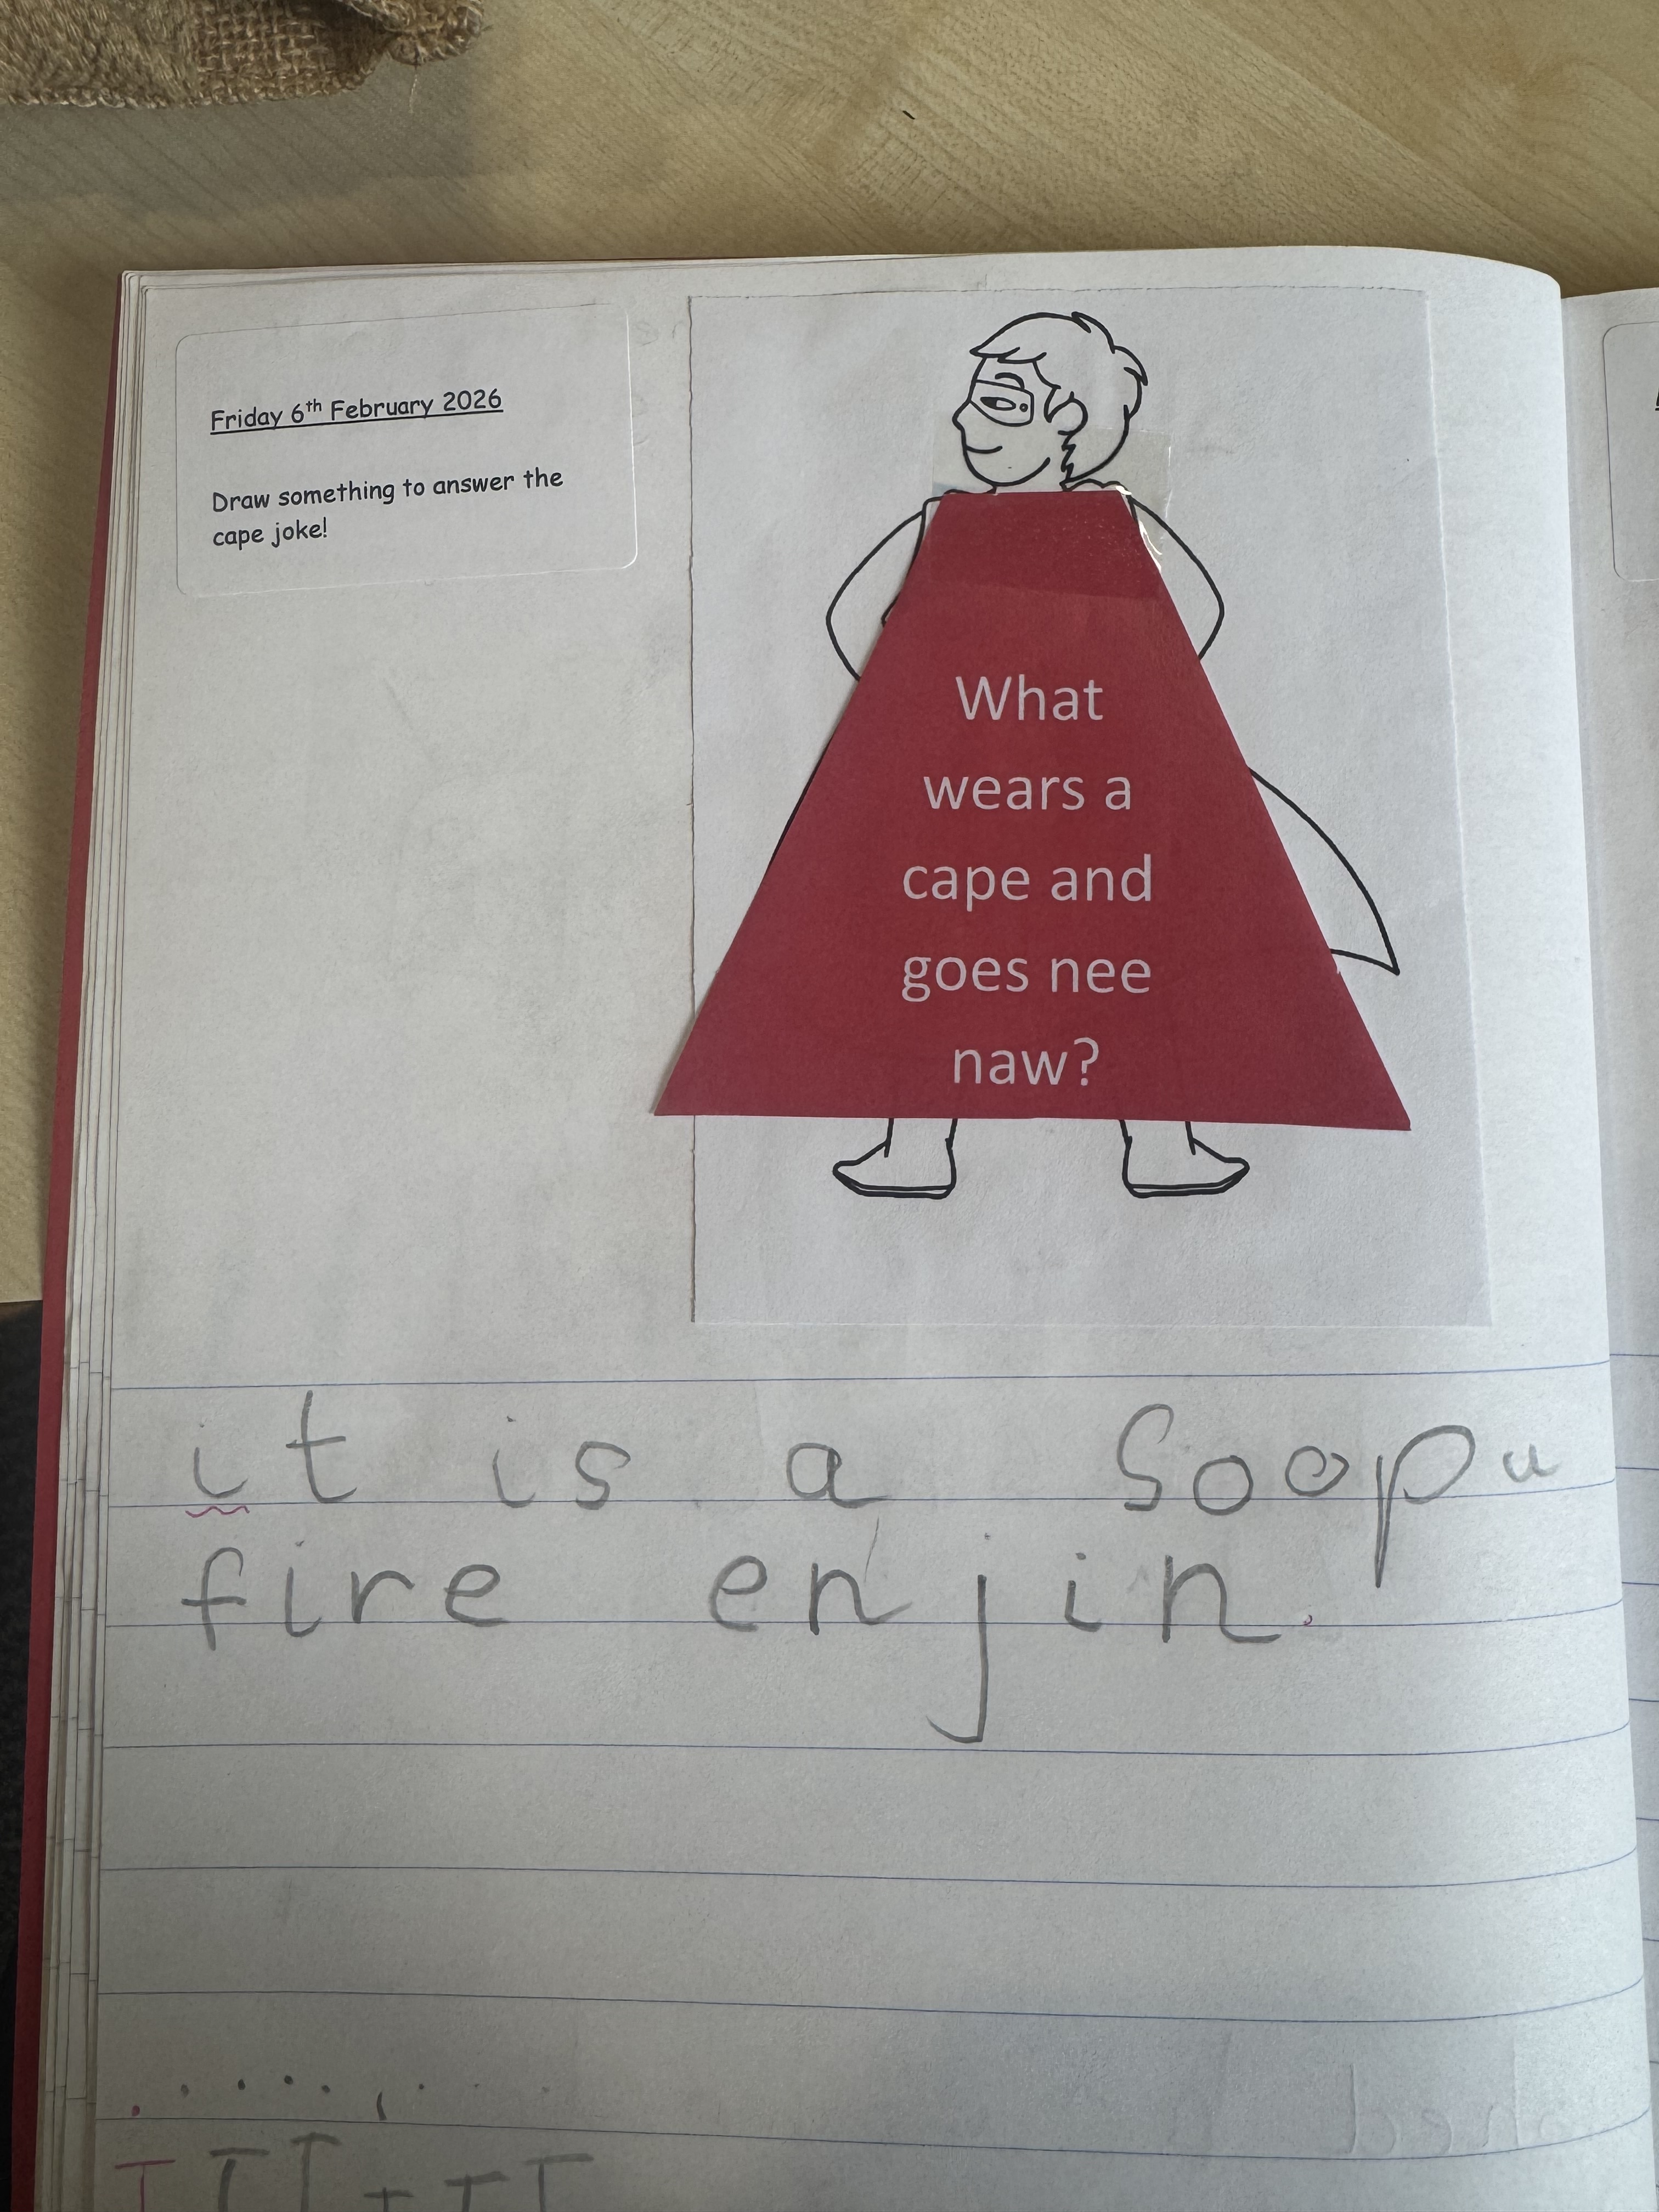 Friday 6th February 2026
Draw something to answer the
cape joke!
What
wears a
cape and
goes nee
naw?
it is a Soopu
fire enjin.
I I I I I I